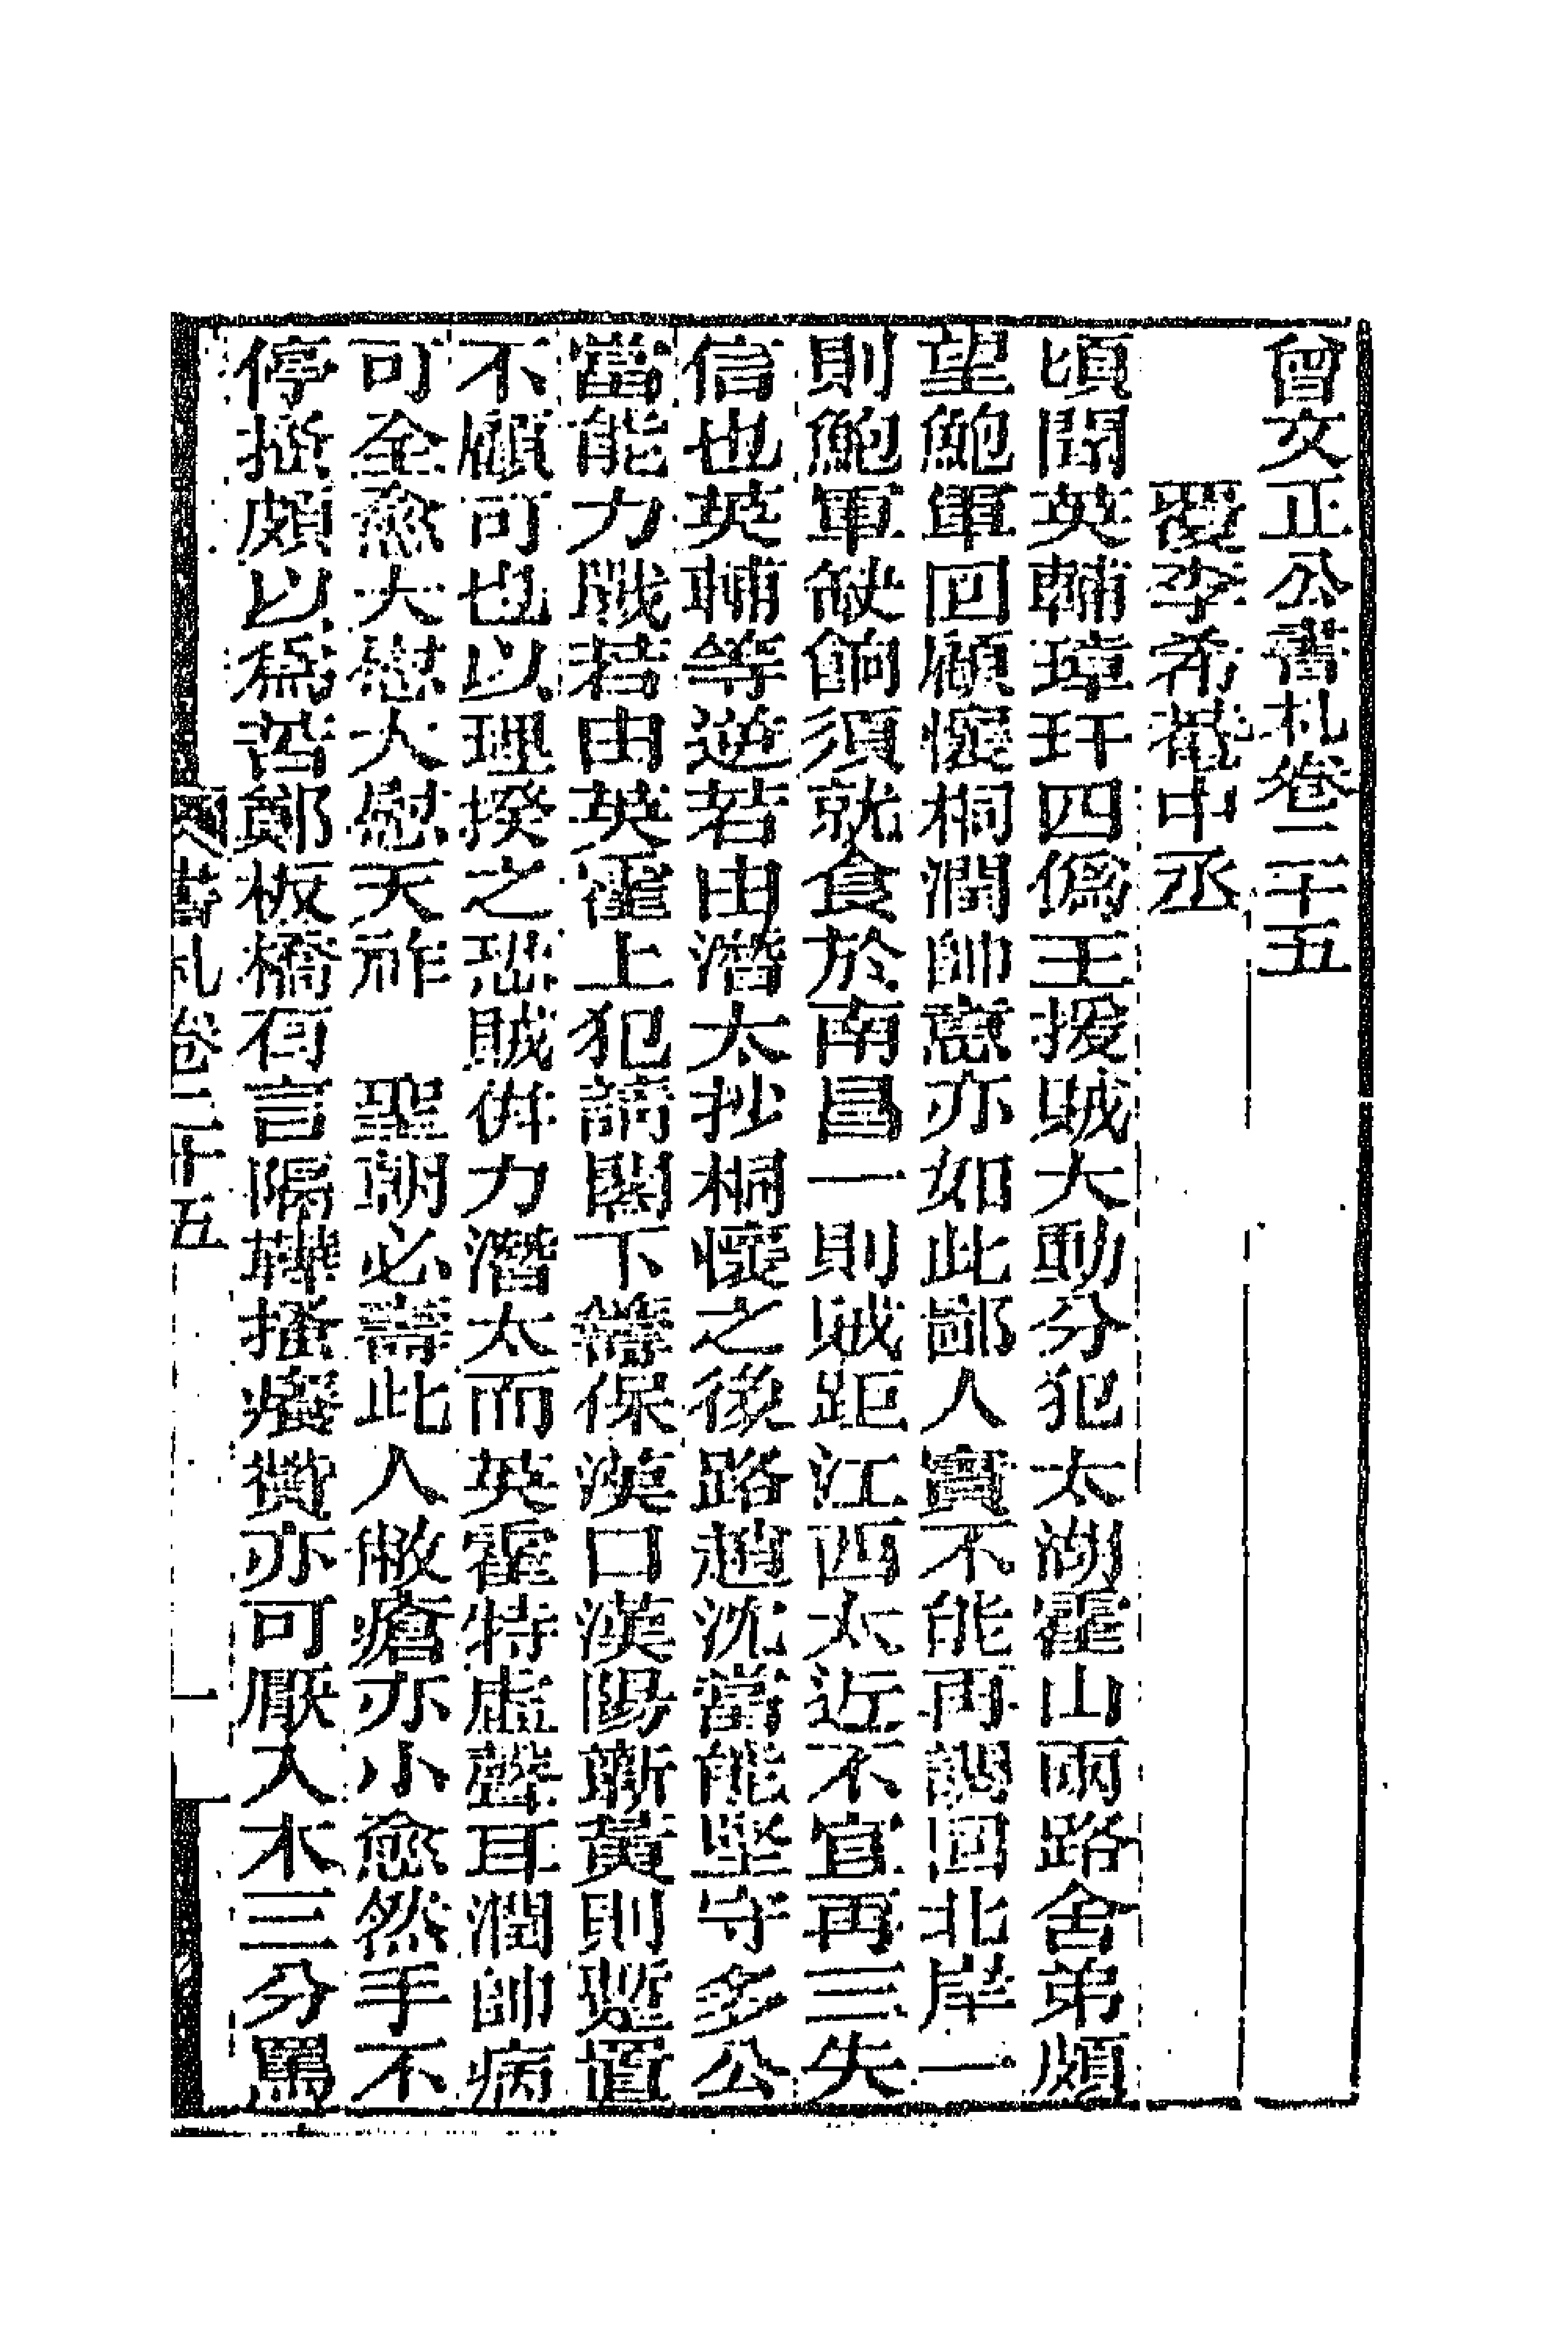 曾文正公書札卷二十五
覆李希菴中丞
頃聞英輔璋玕四僞王援賊大動分犯太湖霍山兩路舍弟頗
望鮑軍回顧懷桐潤帥意亦如此鄙人實不能再調回北岸一
則鮑軍缺餉須就食於南昌一則賊距江西太近不宜再三失
信也英輔等逆若由潛太抄桐懷之後路趙沈當能堅守多公
當能力戰若由英霍上犯請閣下籌保漢口漢陽蘄黃則蹔置
不顧可也以理揆之恐賊併力潛太而英霍特虛聲耳潤帥病
可全愈大慰人慰天祚　聖朝必壽此人敝瘡亦小愈然手不
停抓頗以為苦鄭板橋有言隔鞾搔癢贊亦可厭入木三分罵
書札卷二十五　一